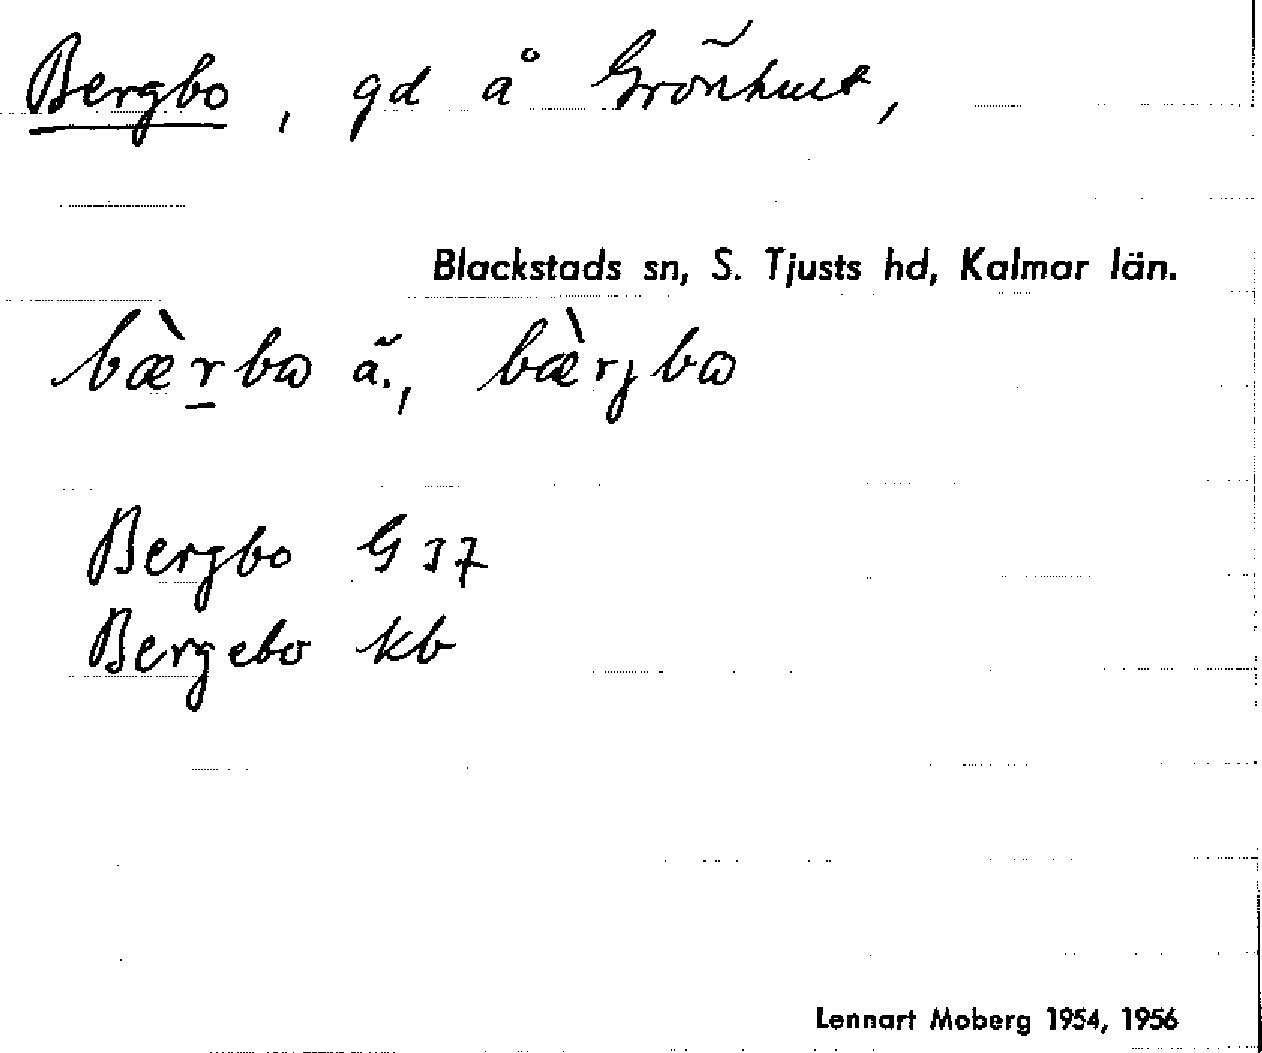 Bergbo, gd å Grönhult,
Blackstads sn, S. Tjusts hd, Kalmar län.
bæ̀r̲bɷ ä., bæ̀rjbɷ
Bergbo G 37
Bergebo kb
Lennart Moberg 1954, 1956